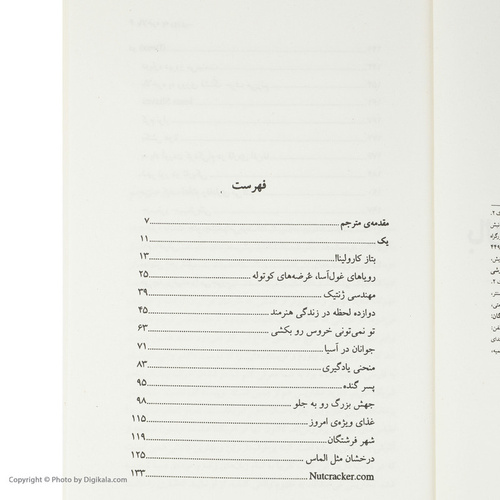 فهرست
مقدمه‌ی مترجم ۷
یک ۱۱
بتاز کارولینا! ۱۳
رویاهای غول‌آسا، عُرضه‌های کوتوله ۲۵
مهندسی ژنتیک ۳۹
دوازده لحظه در زندگی هنرمند ۴۵
تو نمی‌تونی خروس رو بکشی ۶۳
جوانان در آسیا ۷۱
منحنی یادگیری ۸۳
پسر گنده ۹۵
جهش بزرگ رو به جلو ۹۸
غذای ویژه‌ی امروز ۱۱۵
شهر فرشتگان ۱۱۹
درخشان مثل الماس ۱۲۵
Nutcracker.com ۱۳۳
Copyright © Photo by Digikala.com